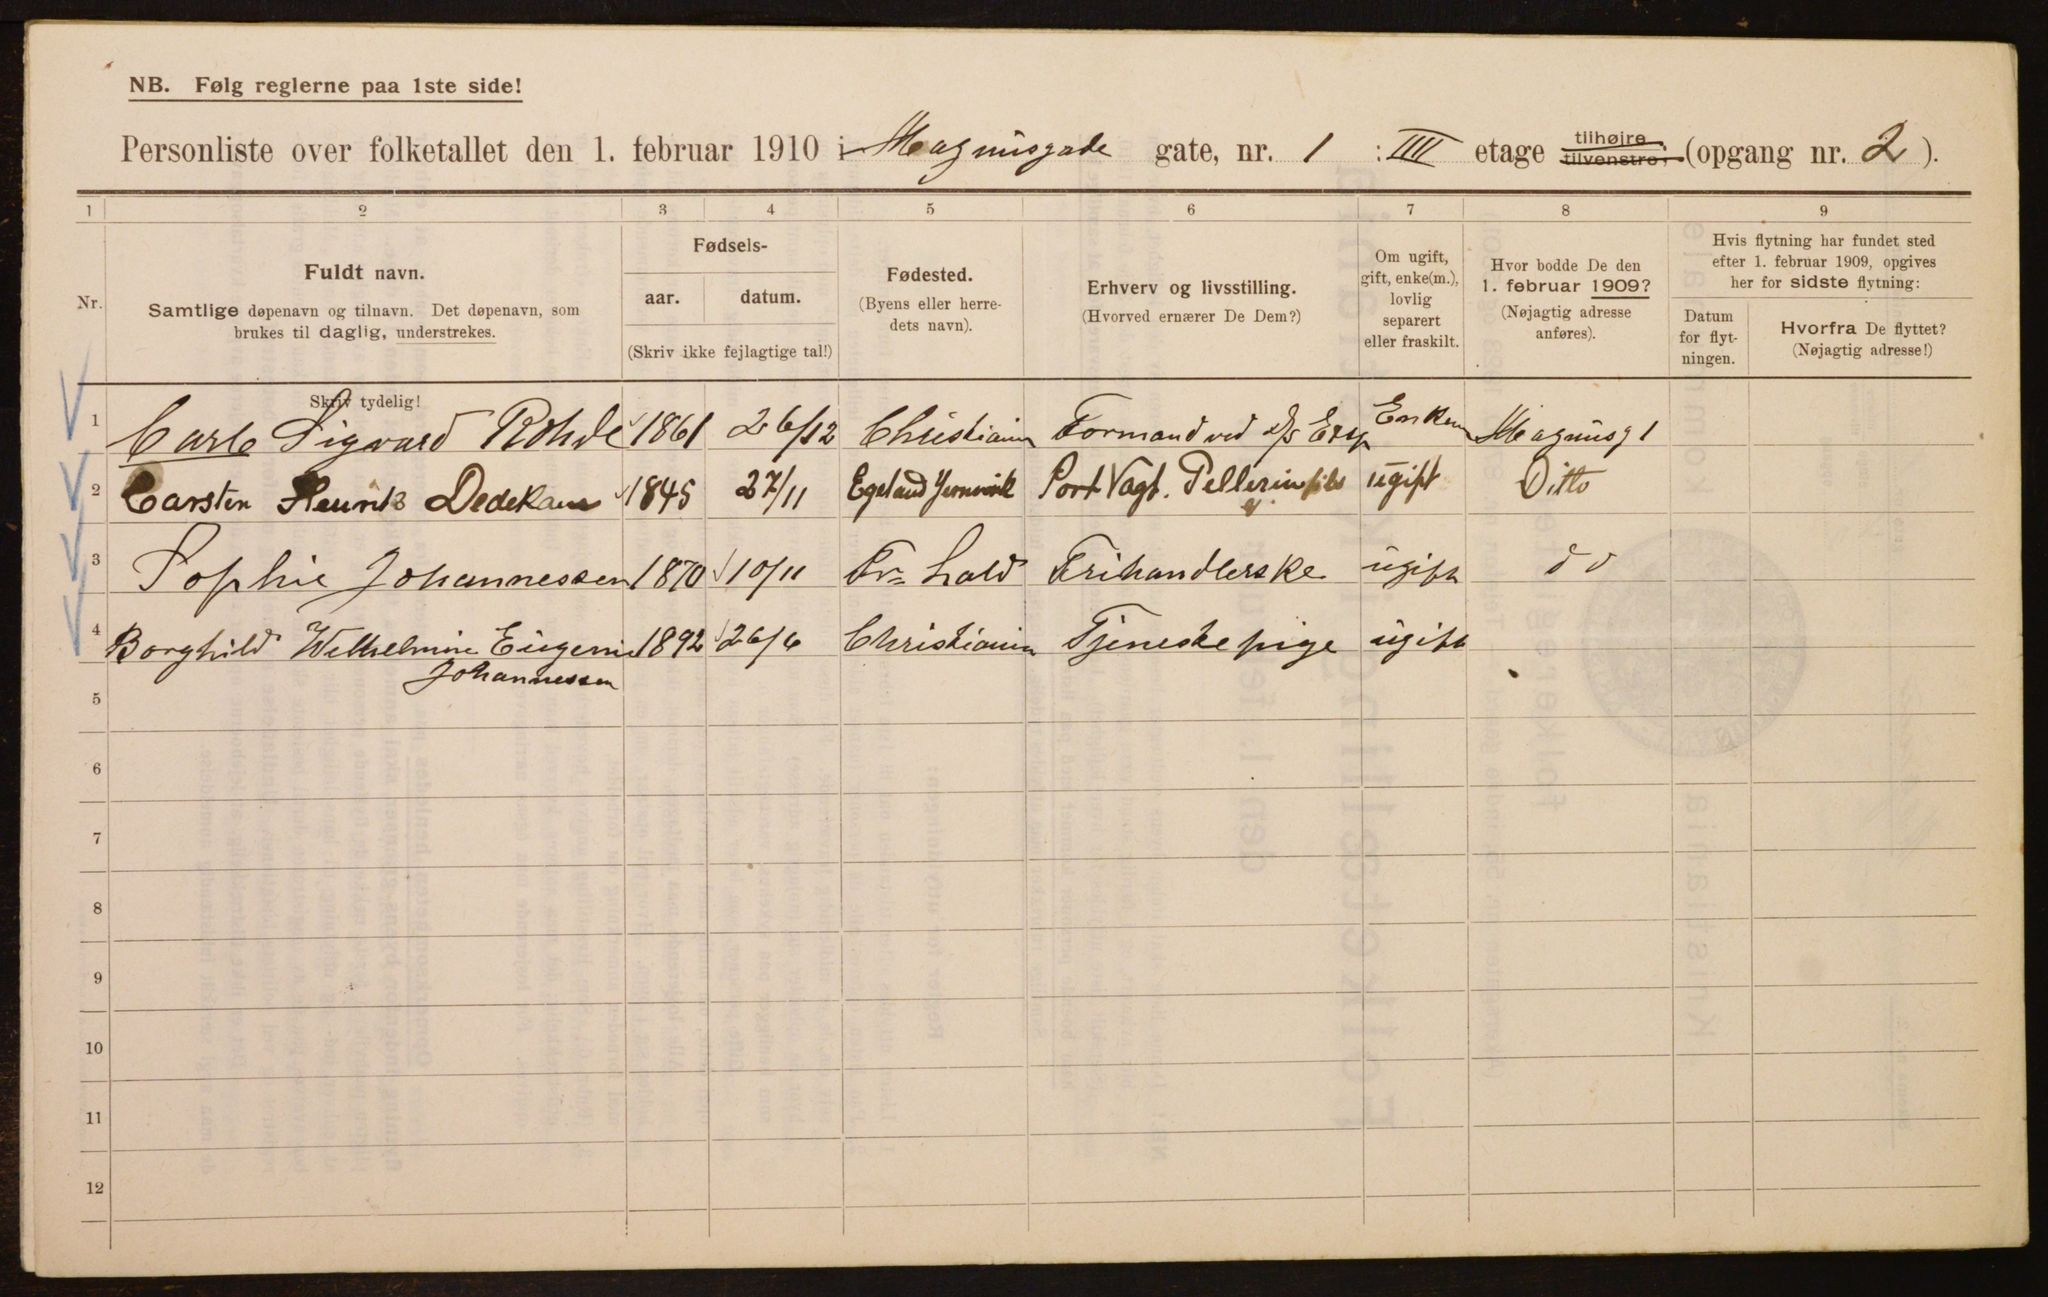 NB. Følg reglerne paa 1ste side!
Personliste over folketallet den 1. februar 1910 i Magnusgade gate, nr. 1 : IIII etage tilhøjre, tilvenstre, (opgang nr. 2 ).
1 2 3 4 5 6 7 8 9
Nr.
Fuldt navn.
Samtlige døpenavn og tilnavn. Det døpenavn, som
brukes til daglig, understrekes.
Fødsels-
aar. datum.
(Skriv ikke fejlagtige tal!)
Fødested.
(Byens eller herre-
dets navn).
Erhverv og livsstilling.
(Hvorved ernærer De Dem?)
Om ugift,
gift, enke(m.),
lovlig
separert
eller fraskilt.
Hvor bodde De den
1. februar 1909?
(Nøjagtig adresse
anføres).
Hvis flytning har fundet sted
efter 1. februar 1909, opgives
her for sidste flytning:
Datum
for flyt-
ningen.
Hvorfra De flyttet?
(Nøjagtig adresse!)
Skriv tydelig!
1 Carl Sigvard Rohde 1861 26/12 Christiania Formand ved Enkem Magnusg 1
2 Carsten Henrik Dedekam 1845 27/11 Egeland Jernverk Port Vagt. Pellerin fils ugift Ditto
3 Sophie Johannessen 1870 10/11 Fr. hald Frihandlerske ugift do
4 Borghild Wilhelmine Eugenie 1892 26/6 Christiania Tjeneste pige ugift
Johannessen
5
6
7
8
9
10
11
12